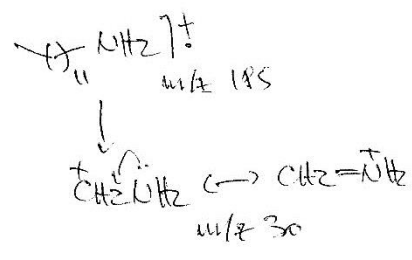 ( )₁₁ NH₂ ]⁺•
m/z 185
⁺CH₂N̈H₂ ↔ CH₂=N⁺H₂
m/z 30